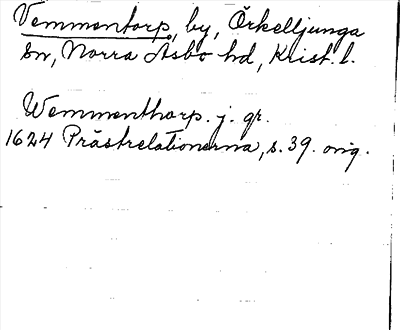 Vemmentorp, by, Örkelljunga
sn, Norra Åsbo hd, Krist. l.
Wemmenthorp. j. gr.
1624 Prästrelationerna, s. 39. orig.